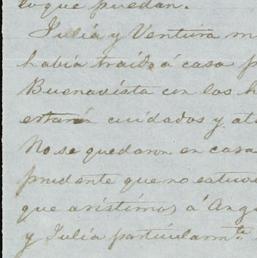 lo que puedan.
Julia y Ventura m
había traido á casa p
Buenavista con los h
estarán cuidados y at
No se quedaron en casa
prudente que no estuvi
que asistimos á Ang
y Julia particularmte